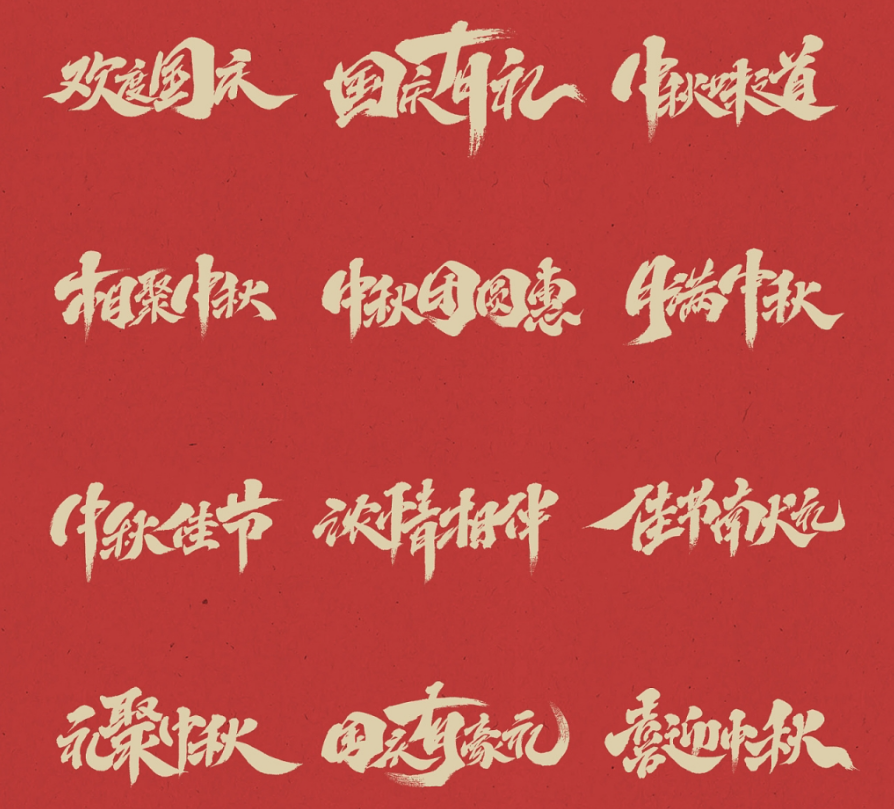 欢度国庆
国庆有礼
中秋味之道
相聚中秋
中秋团圆惠
月满中秋
中秋佳节
浓情相伴
佳节献礼
礼聚中秋
国庆有豪礼
喜迎中秋